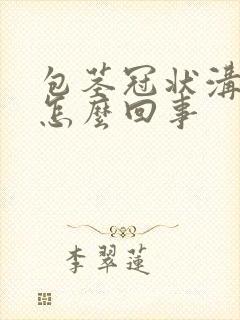 包茎冠状溝
怎麼回事
李翠蓮